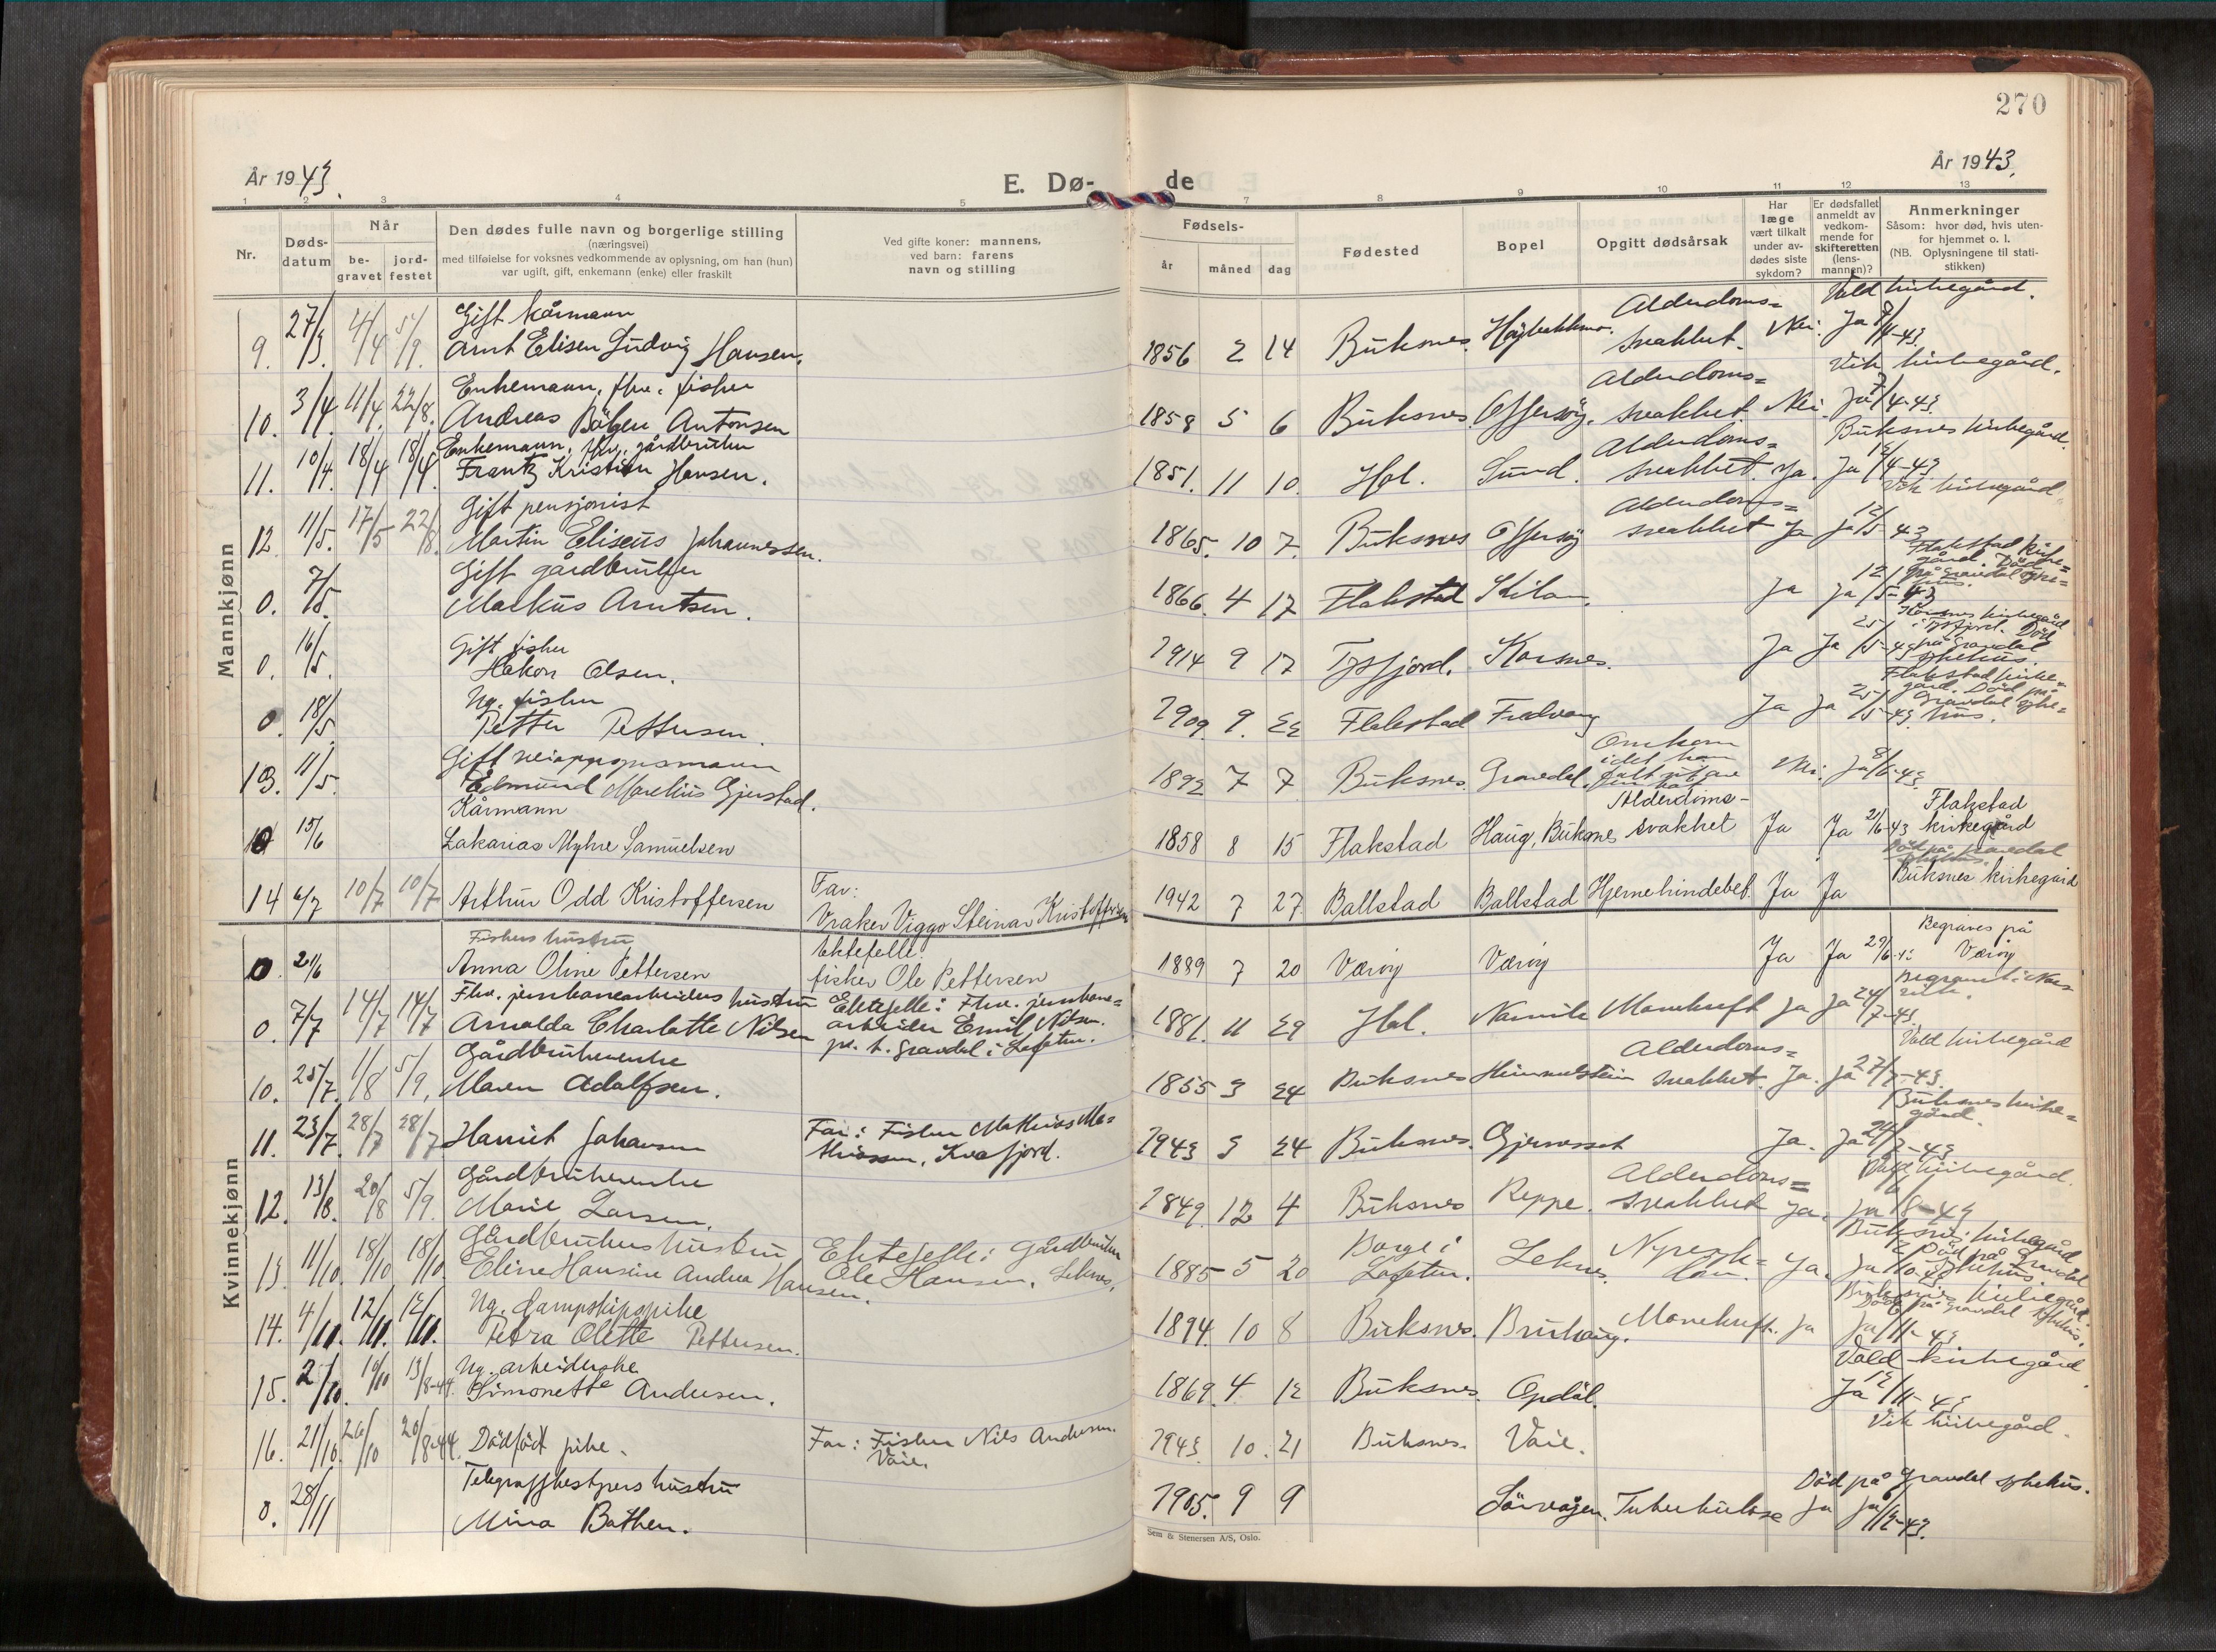 270
År 1943.
E. Dø-
de
År 1943.
1 2 3 4 5 7 8 9 10 11 12 13
Nr.
Døds-
datum
Når
be-
gravet
jord-
festet
Den dødes fulle navn og borgerlige stilling
(næringsvei)
med tilføielse for voksnes vedkommende av oplysning, om han (hun)
var ugift, gift, enkemann (enke) eller fraskilt
Ved gifte koner: mannens,
ved barn: farens
navn og stilling
Fødsels-
år måned dag
Fødested
Bopel
Opgitt dødsårsak
Har
læge
vært tilkalt
under av-
dødes siste
sykdom?
Er dødsfallet
anmeldt av
vedkom-
mende for
skifteretten
(lens-
mannen)?
Anmerkninger
Såsom: hvor død, hvis uten-
for hjemmet o. l.
(NB. Oplysningene til stati-
stikken)
Mannkjønn
Gift kårmann Alderdoms= Vold kirkegård.
9. 27/3 4/4 5/9. Arnt Elisen Ludvig Hansen. 1856 2 14 Buksnes. svakhet. Nei. Ja 8/4-43.
Enkemann, fhv. fisker Alderdoms= Vik kirkegård.
10. 3/4. 11/4. 22/8. Andreas Bøgen Antonsen 1858 5 6 Buksnes Offersøy. svakhet. Nei. Ja 7/4-43.
Enkemann, fhv. gårdbruker Alderdoms= Buksnes kirkegård.
11. 10/4. 18/4 18/4. Frantz Kristian Hansen. 1851. 11 10. Hol. Sund. svakhet. Ja. Ja 12/4-43
Gift pensjonist Alderdoms= Vik kirkegård
12. 11/5. 17/5 22/8. Martin Eliseus Johannessen. 1865. 10 7. Buksnes Offersøy svakhet Ja Ja 12/5-43
Gift gårdbruker Flakstad kirke=
gård. Død
på Gravdal syke=
hus.
0. 7/5. Markus Arntsen. 1866. 4 17 Flakstad Kilan. Ja Ja 12/5-43
Gift fisker Korsnes kirkegård
i Tysfjord. Død
på Gravdal
sykehus.
0. 16/5. Håkon Olsen. 1914 9 17 Tysfjord. Korsnes. Ja Ja 25/5-43
Ug. fisker Flakstad kirke=
gård. Død på
Gravdal syke=
hus.
0. 18/5 Petter Pettersen. 1909. 9. 22 Flakstad Fredvang Ja Ja 25/5-43
Gift veioppsynsmann Omkom
idet han
falt ut av
13. 11/5. Edmund Marelius Gjerstad. 1892 7 7 Buksnes. Gravdal. Nei. Ja 8/6-43
Kårmann Alderdoms- Flakstad
15/6 Zakarias Myhre Samuelsen 1858 8 15 Flakstad Haug, Buksnes svakhet Ja Ja 21/6-43 kirkegård
Død på Gravdal
sykehus.
14 6/7 10/7 10/7 Arthur Odd Kristoffersen Far: 1942 7 27 Ballstad Ballstad Hjernehindebet. Ja Ja Buksnes kirkegård
Vraker Viggo Steinar Kristoffersen
Kvinnekjønn
Fiskers hustru Ektefelle: Begraves på
0. 21/6 Anna Oline Pettersen fisker Ole Pettersen 1889 7 20 Værøy Værøy Ja Ja 29/6 Værøy
Fhv. jernbanearbeiders hustru Ektefelle: Fhv. jernbane=
0. 7/7 14/7 14/7 Arnolda Charlotte Nilsen arbeider Emil Nilsen. 1881. 11 29 Hol. Narvik Mavekreft Ja Ja 24/7-43
p. t. Gravdal i Lofoten.
Begravet i Nar-
vik.
Gårdbrukerenke Alderdoms= Vold kirkegård
10. 25/7. 1/8 5/9. Maren Adolfsen. 1855 3 24 Buksnes Himmelstein svakhet. Ja. Ja 27/7-43.
Buksnes kirke=
gård.
11. 23/7. 28/7 28/7 Harriet Johansen Far: Fisker Mathias Ma= 1943 3 24 Buksnes. Gjerresset Ja. Ja 24/7-43
thiassen, Kvæfjord.
Gårdbrukerenke Alderdoms= Vold kirkegård.
12. 13/8. 20/8 5/9. Marie Larsen. 1849. 12 4 Buksnes Reppe. svakhet Ja. Ja
Gårdbrukers hustru Ektefelle: Gårdbruker Borge i Buksnes kirkegård
Død på Gravdal
sykehus.
13. 11/10. 18/10 18/10. Eline Hansine Andrea Hansen. Ole Hansen, Leknes. 1885 5 20 Lofoten. Leknes. Ja. Ja
Ug. dampskipspike Buksnes kirkegård.
Død på Gravdal sykehus.
14. 4/10. 12/10. 12/10. Petra Olette Pettersen. 1894. 10 8 Buksnes. Bruhaug. Mavekreft. Ja Ja
Ug. arbeiderske Vold kirkegård.
15. 2/10. 10/10 13/8-44. Simonette Andersen. 1869. 4. 12 Buksnes. Opdøl. Ja 12/11-43
Vik kirkegård.
16. 21/10. 26/10 20/8-44. Dødfødt pike. Far: Fisker Nils Andersen. 1943. 10. 21 Buksnes. Vaie.
Vaie.
Telegrafbestyrers hustru Død på Gravdal sykehus.
0. 28/11 Mina Bathen. 1905. 9 9 Sørvågen. Tuberkulose Ja Ja
Sem & Stenersen A/S, Oslo.